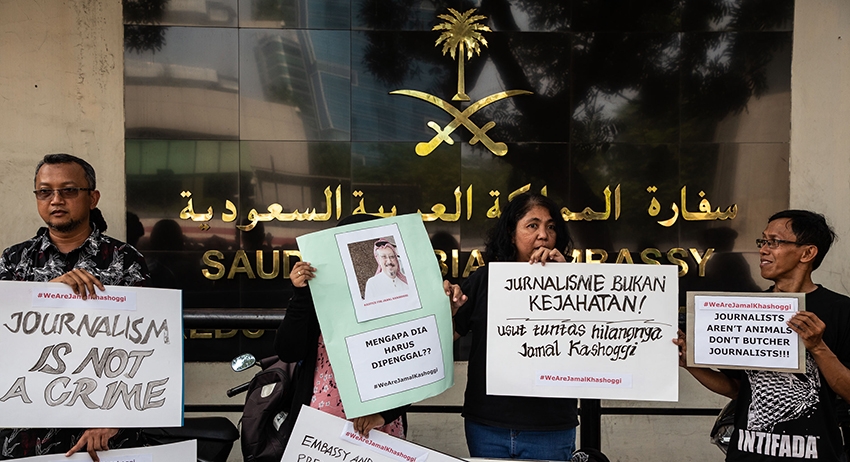 سفارة المملكة العربية السعودية
SAUDI ARABIA EMBASSY
#WeAreJamalKhashoggi
JOURNALISM
IS NOT
A CRIME
MENGAPA DIA
HARUS
DIPENGGAL??
#WeAreJamalKhashoggi
JURNALISME BUKAN
KEJAHATAN!
usut tuntas hilangnya
Jamal Kashoggi
#WeAreJamalKhashoggi
#WeAreJamalKhashoggi
JOURNALISTS
AREN'T ANIMALS
DON'T BUTCHER
JOURNALISTS!!!
INTIFADA
EMBASSY AND